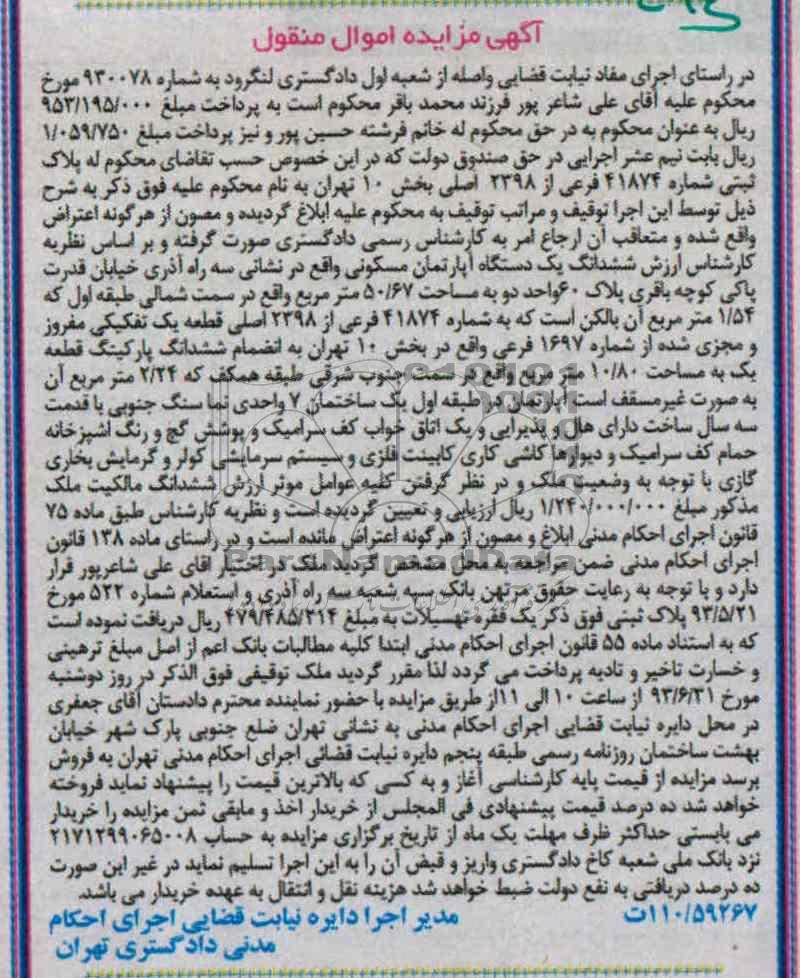 آگهی مزایده اموال منقول
در راستای اجرای مفاد نیابت قضایی واصله از شعبه اول دادگستری لنگرود به شماره ۹۳۰۰۷۸ مورخ
محکوم علیه آقای علی شاعر پور فرزند محمد باقر محکوم است به پرداخت مبلغ ۹۵۳/۱۹۵/۰۰۰
ریال به عنوان محکوم به در حق محکوم له خانم فرشته حسین پور و نیز پرداخت مبلغ ۱/۰۵۹/۷۵۰
ریال بابت نیم عشر اجرایی در حق صندوق دولت که در این خصوص حسب تقاضای محکوم له پلاک
ثبتی شماره ۴۱۸۷۴ فرعی از ۲۳۹۸ اصلی بخش ۱۰ تهران به نام محکوم علیه فوق ذکر به شرح
ذیل توسط این اجرا توقیف و مراتب توقیف به محکوم علیه ابلاغ گردیده و مصون از هرگونه اعتراض
واقع شده و متعاقب آن ارجاع امر به کارشناس رسمی دادگستری صورت گرفته و بر اساس نظریه
کارشناس ارزش ششدانگ یک دستگاه آپارتمان مسکونی واقع در نشانی سه راه آذری خیابان قدرت
پاکی کوچه باقری پلاک ۶۰واحد دو به مساحت ۵۰/۶۷ متر مربع واقع در سمت شمالی طبقه اول که
۱/۵۴ متر مربع آن بالکن است که به شماره ۴۱۸۷۴ فرعی از ۲۳۹۸ اصلی قطعه یک تفکیکی مفروز
و مجزی شده از شماره ۱۶۹۷ فرعی واقع در بخش ۱۰ تهران به انضمام ششدانگ پارکینگ قطعه
یک به مساحت ۱۰/۸۰ متر مربع واقع در سمت جنوب شرقی طبقه همکف که ۲/۲۴ متر مربع آن
به صورت غیرمسقف است آپارتمان در طبقه اول یک ساختمان ۷ واحدی نما سنگ جنوبی با قدمت
سه سال ساخت دارای هال و پذیرایی و یک اتاق خواب کف سرامیک و پوشش گچ و رنگ اشپزخانه
حمام کف سرامیک و دیوارها کاشی کاری کابینت فلزی و سیستم سرمایشی کولر و گرمایش بخاری
گازی با توجه به وضعیت ملک و در نظر گرفتن کلیه عوامل موثر ارزش ششدانگ مالکیت ملک
مذکور مبلغ ۱/۲۴۰/۰۰۰/۰۰۰ ریال ارزیابی و تعیین گردیده است و نظریه کارشناس طبق ماده ۷۵
قانون اجرای احکام مدنی ابلاغ و مصون از هرگونه اعتراض مانده است و در راستای ماده ۱۳۸ قانون
اجرای احکام مدنی ضمن مراجعه به محل مشخص گردید ملک در اختیار اقای علی شاعرپور قرار
دارد و با توجه به رعایت حقوق مرتهن بانک سپه شعبه سه راه آذری و استعلام شماره ۵۲۲ مورخ
۹۳/۵/۲۱ پلاک ثبتی فوق ذکر یک فقره تهسیلات به مبلغ ۴۷۹/۴۸۵/۳۱۴ ریال دریافت نموده است
که به استناد ماده ۵۵ قانون اجرای احکام مدنی ابتدا کلیه مطالبات بانک اعم از اصل مبلغ ترهینی
و خسارت تاخیر و تادیه پرداخت می گردد لذا مقرر گردید ملک توقیفی فوق الذکر در روز دوشنبه
مورخ ۹۳/۶/۳۱ از ساعت ۱۰ الی ۱۱از طریق مزایده با حضور نماینده محترم دادستان آقای جعفری
در محل دایره نیابت قضایی اجرای احکام مدنی به نشانی تهران ضلع جنوبی پارک شهر خیابان
بهشت ساختمان روزنامه رسمی طبقه پنجم دایره نیابت قضائی اجرای احکام مدنی تهران به فروش
برسد مزایده از قیمت پایه کارشناسی آغاز و به کسی که بالاترین قیمت را پیشنهاد نماید فروخته
خواهد شد ده درصد قیمت پیشنهادی فی المجلس از خریدار اخذ و مابقی ثمن مزایده را خریدار
می بایستی حداکثر ظرف مهلت یک ماه از تاریخ برگزاری مزایده به حساب ۲۱۷۱۲۹۹۰۶۵۰۰۸
نزد بانک ملی شعبه کاخ دادگستری واریز و قبض آن را به این اجرا تسلیم نماید در غیر این صورت
ده درصد دریافتی به نفع دولت ضبط خواهد شد هزینه نقل و انتقال به عهده خریدار می باشد.
۱۱۰/۵۹۲۶۷ت
مدیر اجرا دایره نیابت قضایی اجرای احکام
مدنی دادگستری تهران
ParsNamadData